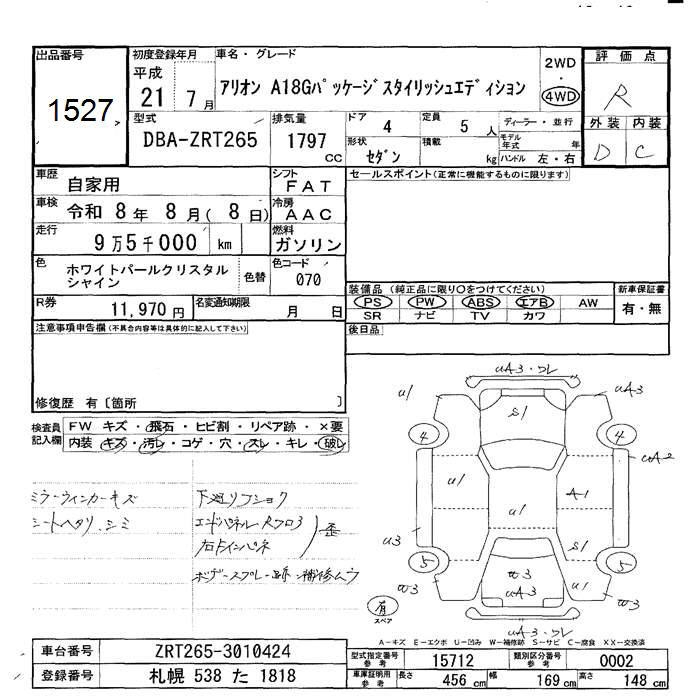 出品番号
1527
初度登録年月
平成
21 7月
車名・グレード
アリオン A18Gパッケージスタイリッシュエディション
2WD
・
4WD
評価点
R
外装 内装
D C
型式
DBA-ZRT265
排気量
1797
cc
ドア 4
定員 5 人
ディーラー・並行
モデル年式 年
形状 セダン
積載 kg
ハンドル 左・右
車歴 自家用
シフト FAT
セールスポイント(正常に機能するものに限ります)
車検 令和 8年 8月( 8日)
冷房 AAC
走行 9万5千000 km
燃料 ガソリン
色 ホワイトパールクリスタル
シャイン
色替
色コード 070
装備品(純正品に限り○をつけてください)
新車保証書
PS PW ABS エアB AW
SR ナビ TV カワ
有・無
R券 11,970円
名変通知期限 月 日
後日品
注意事項申告欄(不具合内容等は具体的に記入して下さい)
修復歴 有〔箇所 〕
検査員
記入欄
FW キズ・飛石・ヒビ割・リペア跡・×要
内装 キズ・汚レ・コゲ・穴・スレ・キレ・破レ
ミラーウィンカーキズ
シートヘタリ、シミ
下廻リフショク
エンドパネル・Rフロア
右トランクインパネ
歪
ボデースプレー跡・補修ムラ
uA3・ワレ
u1
uA3
S1
4
4
u1
A1
uA2
u1
u3
S1
5
5
w3
w3
uA3
u1
w3
有
スペア
uA3・ワレ
A-キズ E-エクボ U-凹み W-補修跡 S-サビ C-腐食 XX-交換済
車台番号 ZRT265-3010424
登録番号 札幌 538 た 1818
型式指定番号
参考
15712
類別区分番号
参考
0002
車庫証明用
参考
長さ 456 cm
幅 169 cm
高さ 148 cm